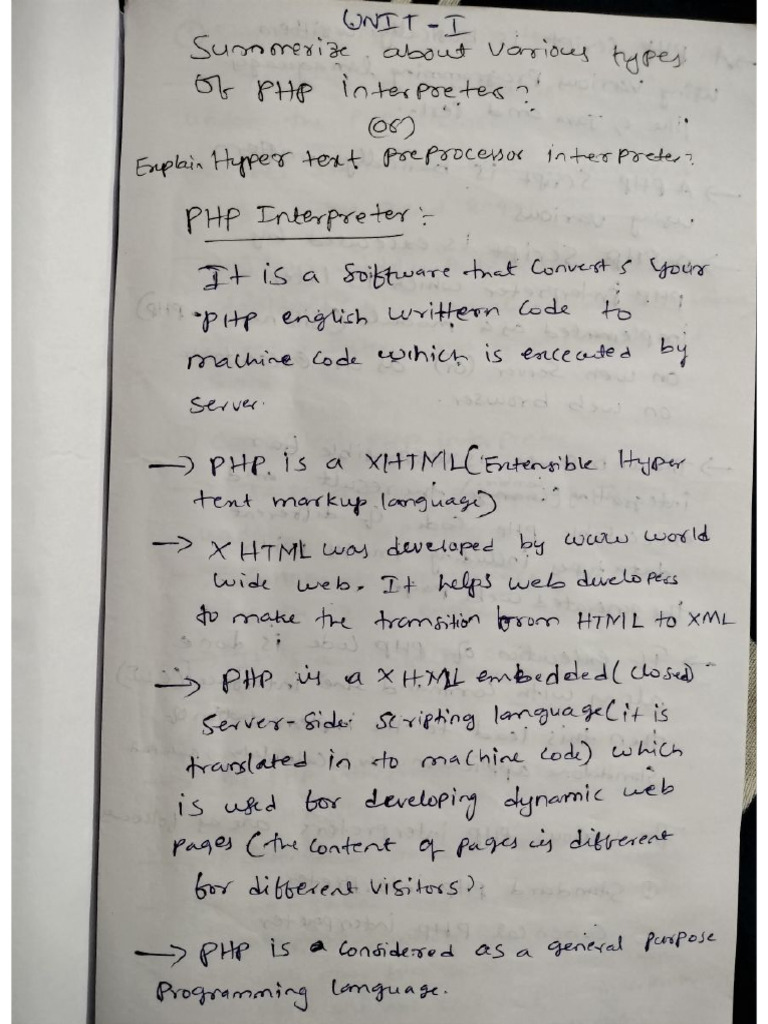 UNIT-I
Summerize about various types
of PHP interpreter?
(or)
Explain Hyper text preprocessor interpreter?
PHP Interpreter:-
It is a software that converts your
PHP english writtern code to
machine code which is excecuted by
server.
→ PHP is a XHTML (Extensible Hyper
text markup language)
→ XHTML was developed by www world
wide web. It helps web developers
to make the transition from HTML to XML
→ PHP is a XHTML embedded (closed)
server-side scripting language (it is
translated in to machine code) which
is used for developing dynamic web
pages (the content of pages is different
for different visitors).
→ PHP is a considered as a general purpose
programming language.